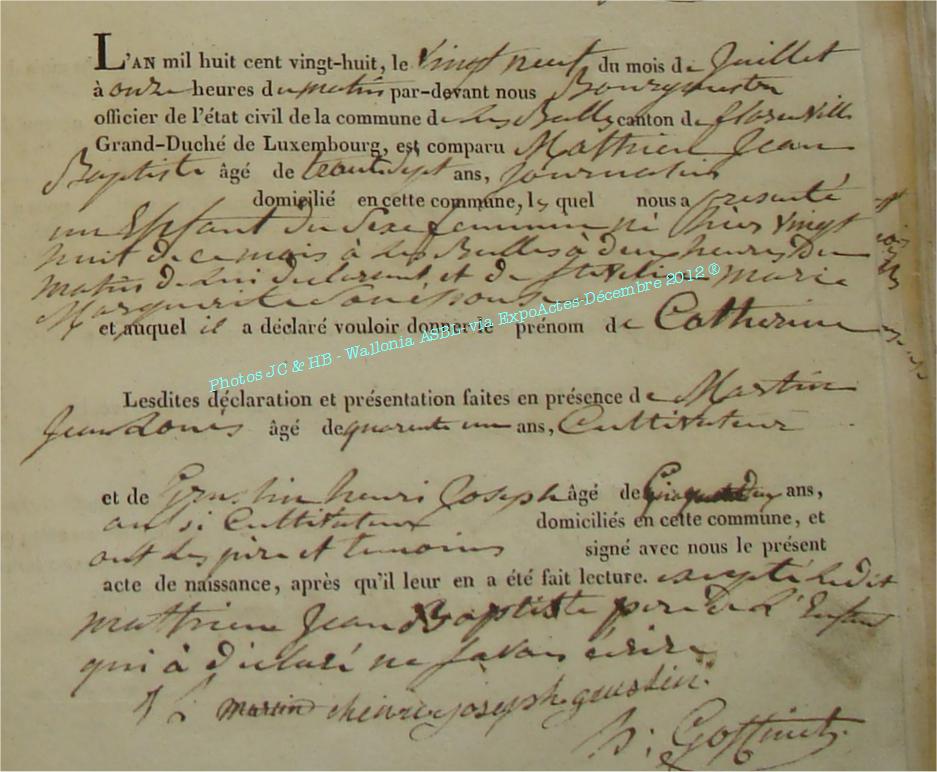 L'AN mil huit cent vingt-huit, le vingt neuf du mois de Juillet
à onze heures du matin par-devant nous Bourgmestre
officier de l'état civil de la commune de les Bulles canton de florenville
Grand-Duché de Luxembourg, est comparu Mathieu Jean
Baptiste âgé de trente sept ans, Journalier
domicilié en cette commune, le quel nous a presenté
un Enfant du Sexe feminin né hier vingt
huit de ce mois à les Bulles à deux heures du
matin de lui declarant et de marie
Marguerite
et auquel il a déclaré vouloir donner le prénom de Catherine
Photos JC & HB - Wallonia ASBL via ExpoActes-Décembre 2012 ®
Lesdites déclaration et présentation faites en présence de Martin
Jean Louis âgé de quarente un ans, Cultivateur
et de henri Joseph âgé de ans,
aussi Cultivateur domiciliés en cette commune, et
ont les père et temoins signé avec nous le présent
acte de naissance, après qu'il leur en a été fait lecture. excepté ledit
mathieu Jean Baptiste pere de L'Enfant
qui à déclaré ne savoir écrire
J L martin henri joseph
Goffinet